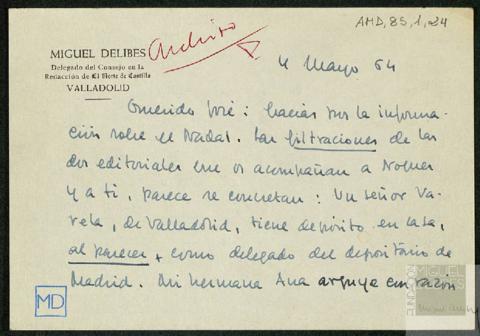 AMD, 85, 1, 24
MIGUEL DELIBES
Delegado del Consejo en la
Redacción de El Norte de Castilla
VALLADOLID
Archivo
4 Mayo 64
Querido José: Gracias por la informa-
ción sobre el Nadal. Las filtraciones de las
dos editoriales que os acompañan a Noguer
y a ti, parece se concretan: Un señor Va-
rela, de Valladolid, tiene depósito en casa,
al parecer, como delegado del depositario de
Madrid. Mi hermana Ana arguye con razón
MD
FUNDACIÓN
MIGUEL
DELIBES